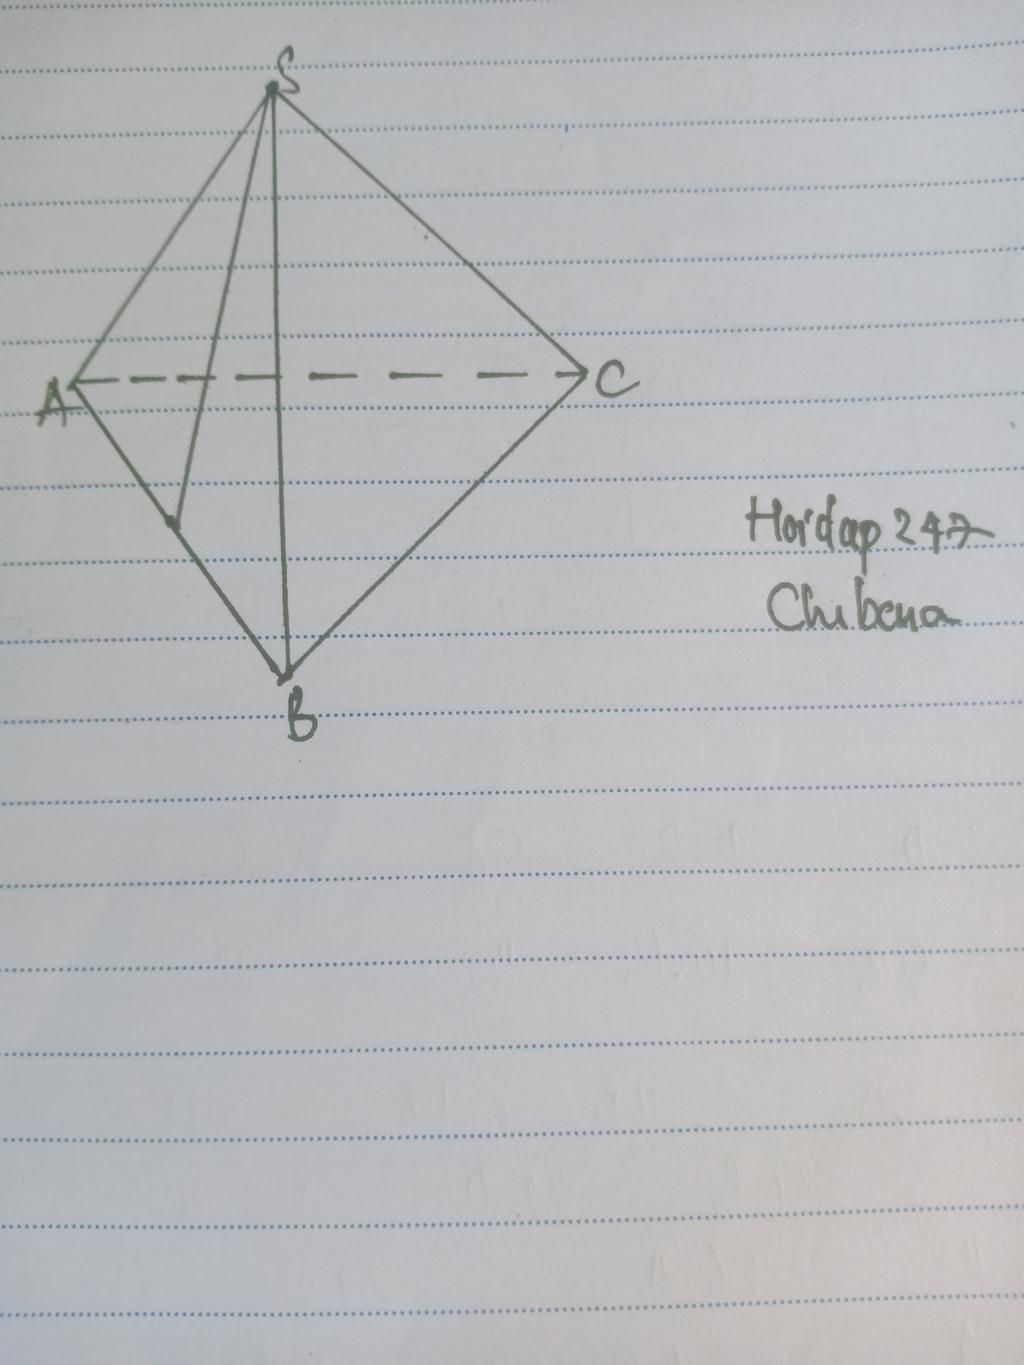 S
A
C
B
Hoidap 247
Chibena